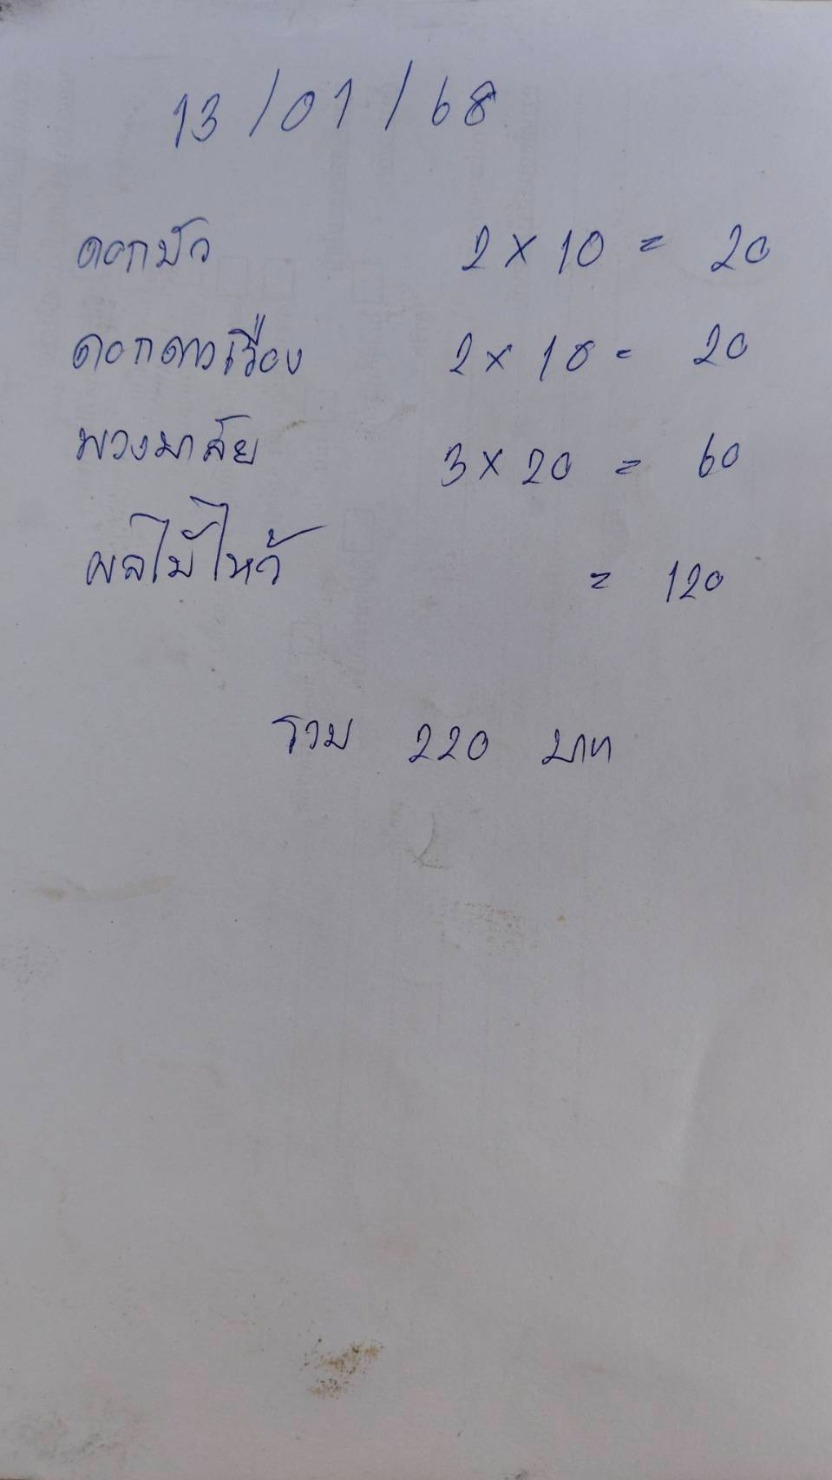 13/01/68
ดอกบัว 2 x 10 = 20
ดอกดาวเรือง 2 x 10 = 20
พวงมาลัย 3 x 20 = 60
ผลไม้ไหว้ = 120
รวม 220 บาท